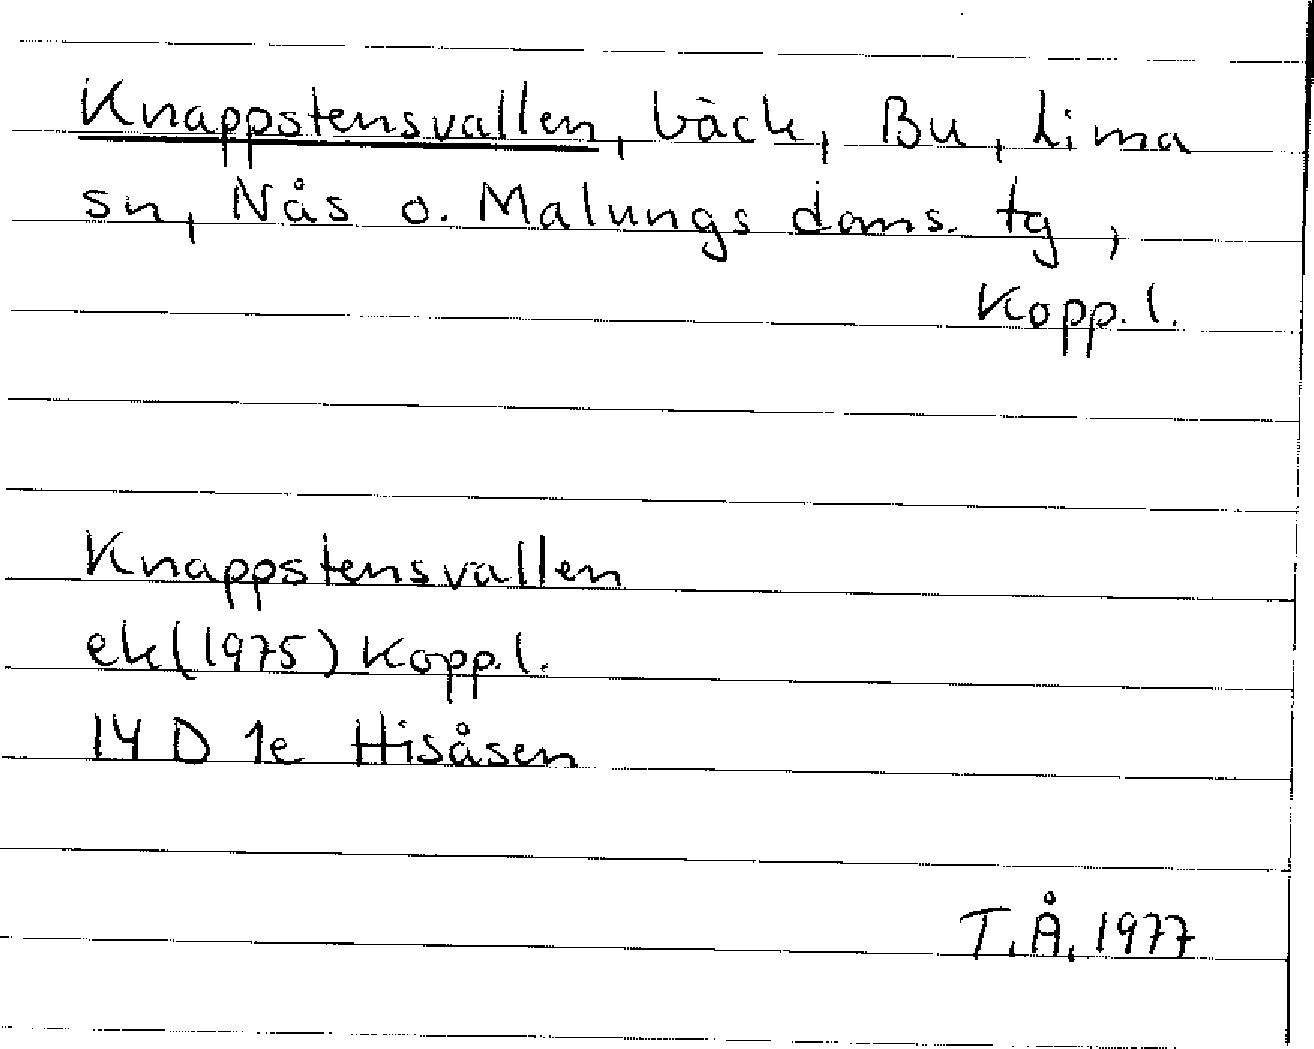 Knappstensvallen, bäck, Bu, Lima
sn, Nås o. Malungs doms. tg,
Kopp. l.
Knappstensvallen
ek(1975) Kopp. l.
14 D 1e Hisåsen
T.Å. 1977